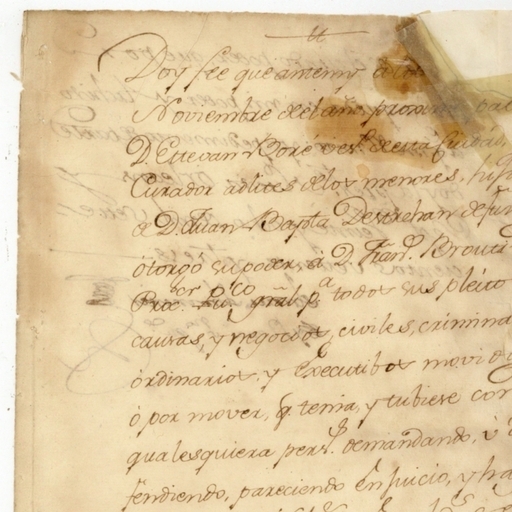 Doy fee que antemi
Noviembre del año proximo pa
D. Estevan Boré vez.º de esta Ciudad,
Curador adlites de los menores, hij
de D. Juan Bapta Destrehan defun
otorgó su poder, á D. Fran.co Brouti
Proc.or pu.co gral p.a todos sus pleito
causas, y negocios, civiles, crimina
ordinarios, y executibos movido
ó por mover, q tenia, y tubiese con
qualesquiera pers.s demandando, ó d
fendiendo, pareciendo en juicio, y ha